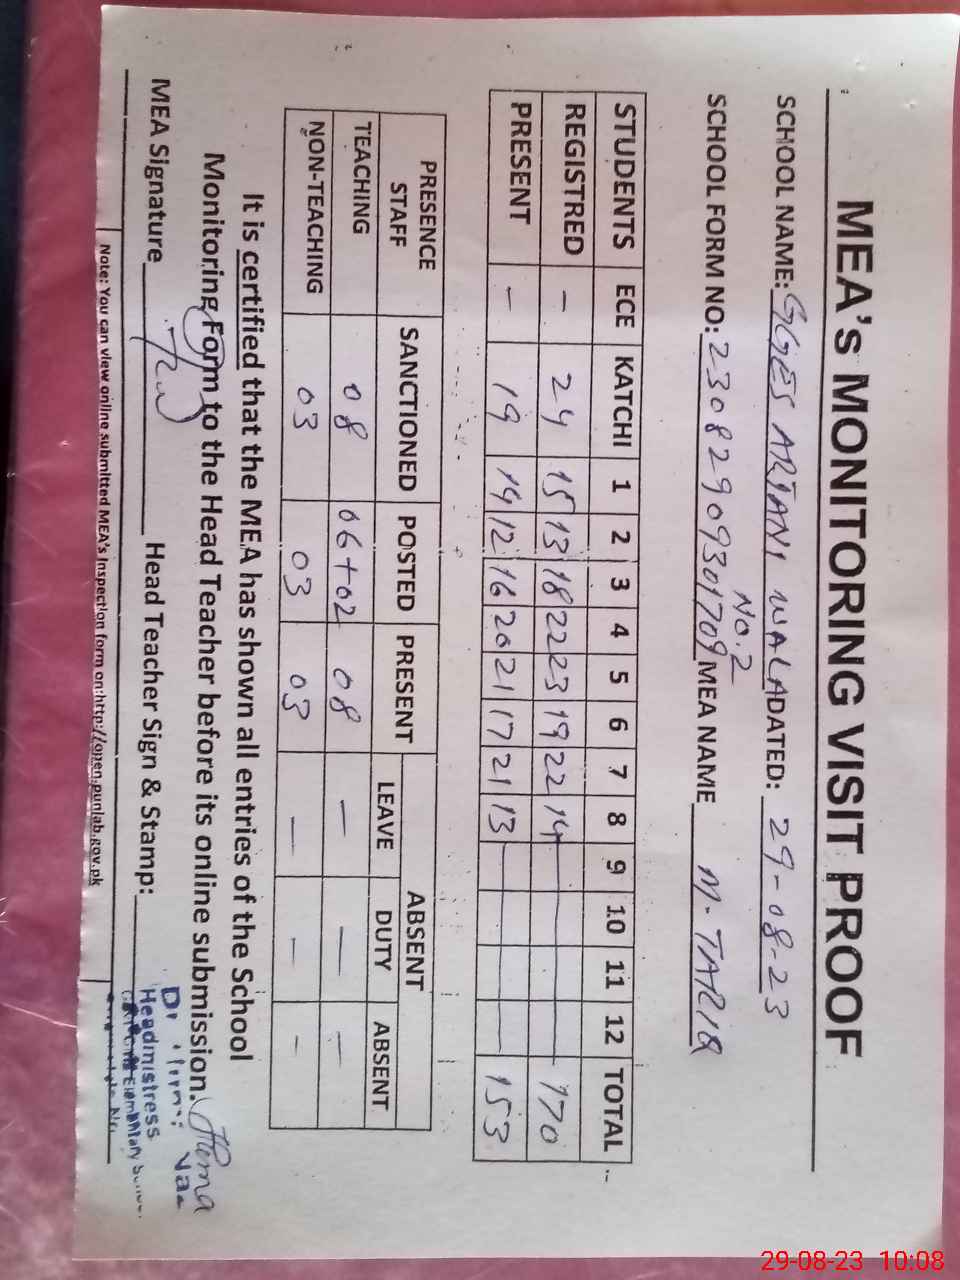 MEA's MONITORING VISIT PROOF
SCHOOL NAME: GGES ARIANI WALA DATED: 29-08-23
No.2
SCHOOL FORM NO: 23082909301709 MEA NAME M. TARIQ
STUDENTS ECE KATCHI 1 2 3 4 5 6 7 8 9 10 11 12 TOTAL
REGISTRED - 24 15 13 18 22 23 19 22 14 170
PRESENT - 19 14 12 16 20 21 17 21 13 153
PRESENCE STAFF SANCTIONED POSTED PRESENT ABSENT
LEAVE DUTY ABSENT
TEACHING 08 06+02 08 - - -
NON-TEACHING 03 03 03 - - -
It is certified that the MEA has shown all entries of the School
Monitoring Form to the Head Teacher before its online submission.
MEA Signature Head Teacher Sign & Stamp:
Huma
Dr.
Headmistress
Elementary School
Note: You can view online submitted MEA's Inspection form on:http://open.punjab.gov.pk
29-08-23 10:08